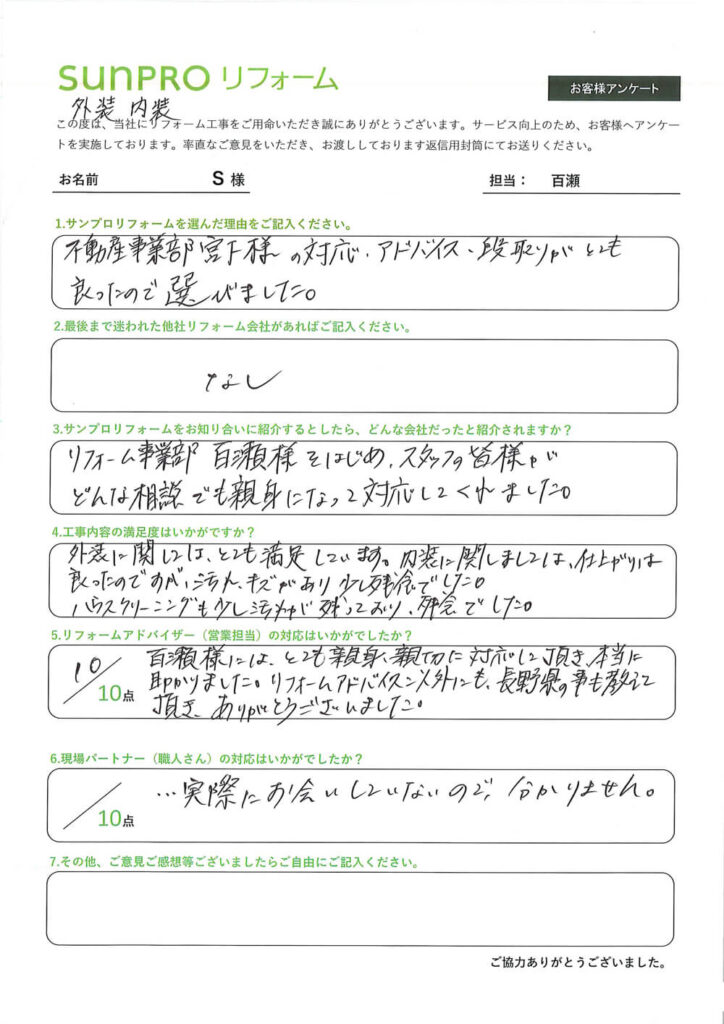 SUNPRO リフォーム
お客様アンケート
外装 内装
この度は、当社にリフォーム工事をご用命いただき誠にありがとうございます。サービス向上のため、お客様へアンケー
トを実施しております。率直なご意見をいただき、お渡ししております返信用封筒にてお送りください。
お名前 S 様 担当： 百瀬
1.サンプロリフォームを選んだ理由をご記入ください。
不動産事業部宮下様の対応・アドバイス・段取りがとても
良ったので選びました。
2.最後まで迷われた他社リフォーム会社があればご記入ください。
なし
3.サンプロリフォームをお知り合いに紹介するとしたら、どんな会社だったと紹介されますか？
リフォーム事業部 百瀬様をはじめ、スタッフの皆様が
どんな相談でも親身になって対応してくれました。
4.工事内容の満足度はいかがですか？
外装に関しては、とても満足しています。内装に関しましては、仕上がりは
良ったのですが、汚れ、キズがあり少し残念でした。
ハウスクリーニングも少し汚れが残っており、残念でした。
5.リフォームアドバイザー（営業担当）の対応はいかがでしたか？
百瀬様には、とても親身、親切に対応して頂き、本当に
10/10点 助かりました。リフォームアドバイス以外にも、長野県の事も教えて
頂き、ありがとうございました。
6.現場パートナー（職人さん）の対応はいかがでしたか？
…実際にお会いしていないので、分かりません。
/10点
7.その他、ご意見ご感想等ございましたらご自由にご記入ください。
ご協力ありがとうございました。